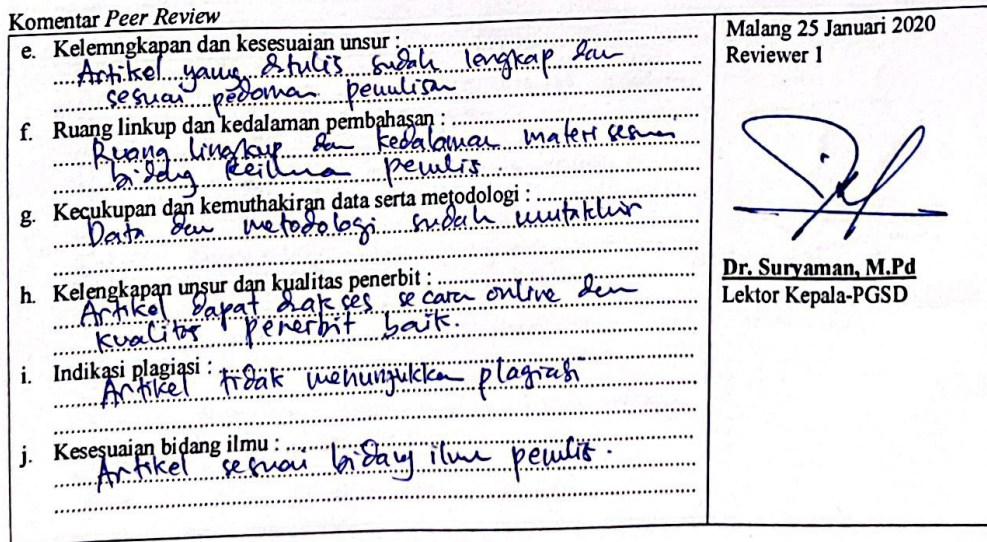 Komentar Peer Review
e. Kelemngkapan dan kesesuaian unsur :
Artikel yang ditulis sudah lengkap dan
sesuai pedoman penulisan
f. Ruang linkup dan kedalaman pembahasan :
Ruang lingkup dan kedalaman materi sesuai
bidang keilmuan penulis.
g. Kecukupan dan kemuthakiran data serta metodologi :
Data dan metodologi sudah mutakhir
h. Kelengkapan unsur dan kualitas penerbit :
Artikel dapat diakses secara online dan
kualitas penerbit baik.
i. Indikasi plagiasi :
Artikel tidak menunjukkan plagiasi
j. Kesesuaian bidang ilmu :
Artikel sesuai bidang ilmu penulis.
Malang 25 Januari 2020
Reviewer 1
Dr. Suryaman, M.Pd
Lektor Kepala-PGSD